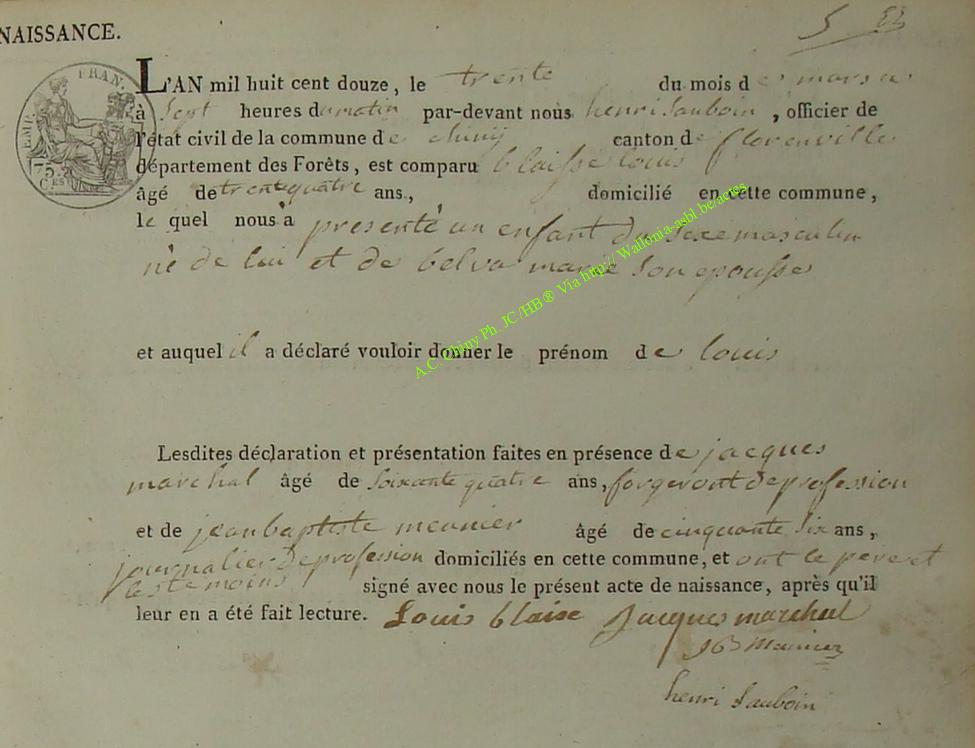 NAISSANCE.
5
L'AN mil huit cent douze, le trente du mois de mars a
à sept heures du matin par-devant nous henri Sauboin, officier de
l'état civil de la commune de chiny canton de florenville
département des Forêts, est comparu blaisse louis
âgé de trentequatre ans, domicilié en cette commune,
le quel nous a presenté un enfant du sexe masculin
né de lui et de belva marie son epousse
et auquel il a déclaré vouloir donner le prénom de louis
Lesdites déclaration et présentation faites en présence de jacques
marchal âgé de soixante quatre ans, forgeront de profession
et de jean baptiste meunier âgé de cinquante six ans,
journalier de profession domiciliés en cette commune, et ont le pere et
les temoins signé avec nous le présent acte de naissance, après qu'il
leur en a été fait lecture. Louis blaise Jacques marchal
henri Sauboin
FRAN.
75
A.C. Chiny Ph. JC /HB ® Via http:// Wallonia-asbl.be/actes